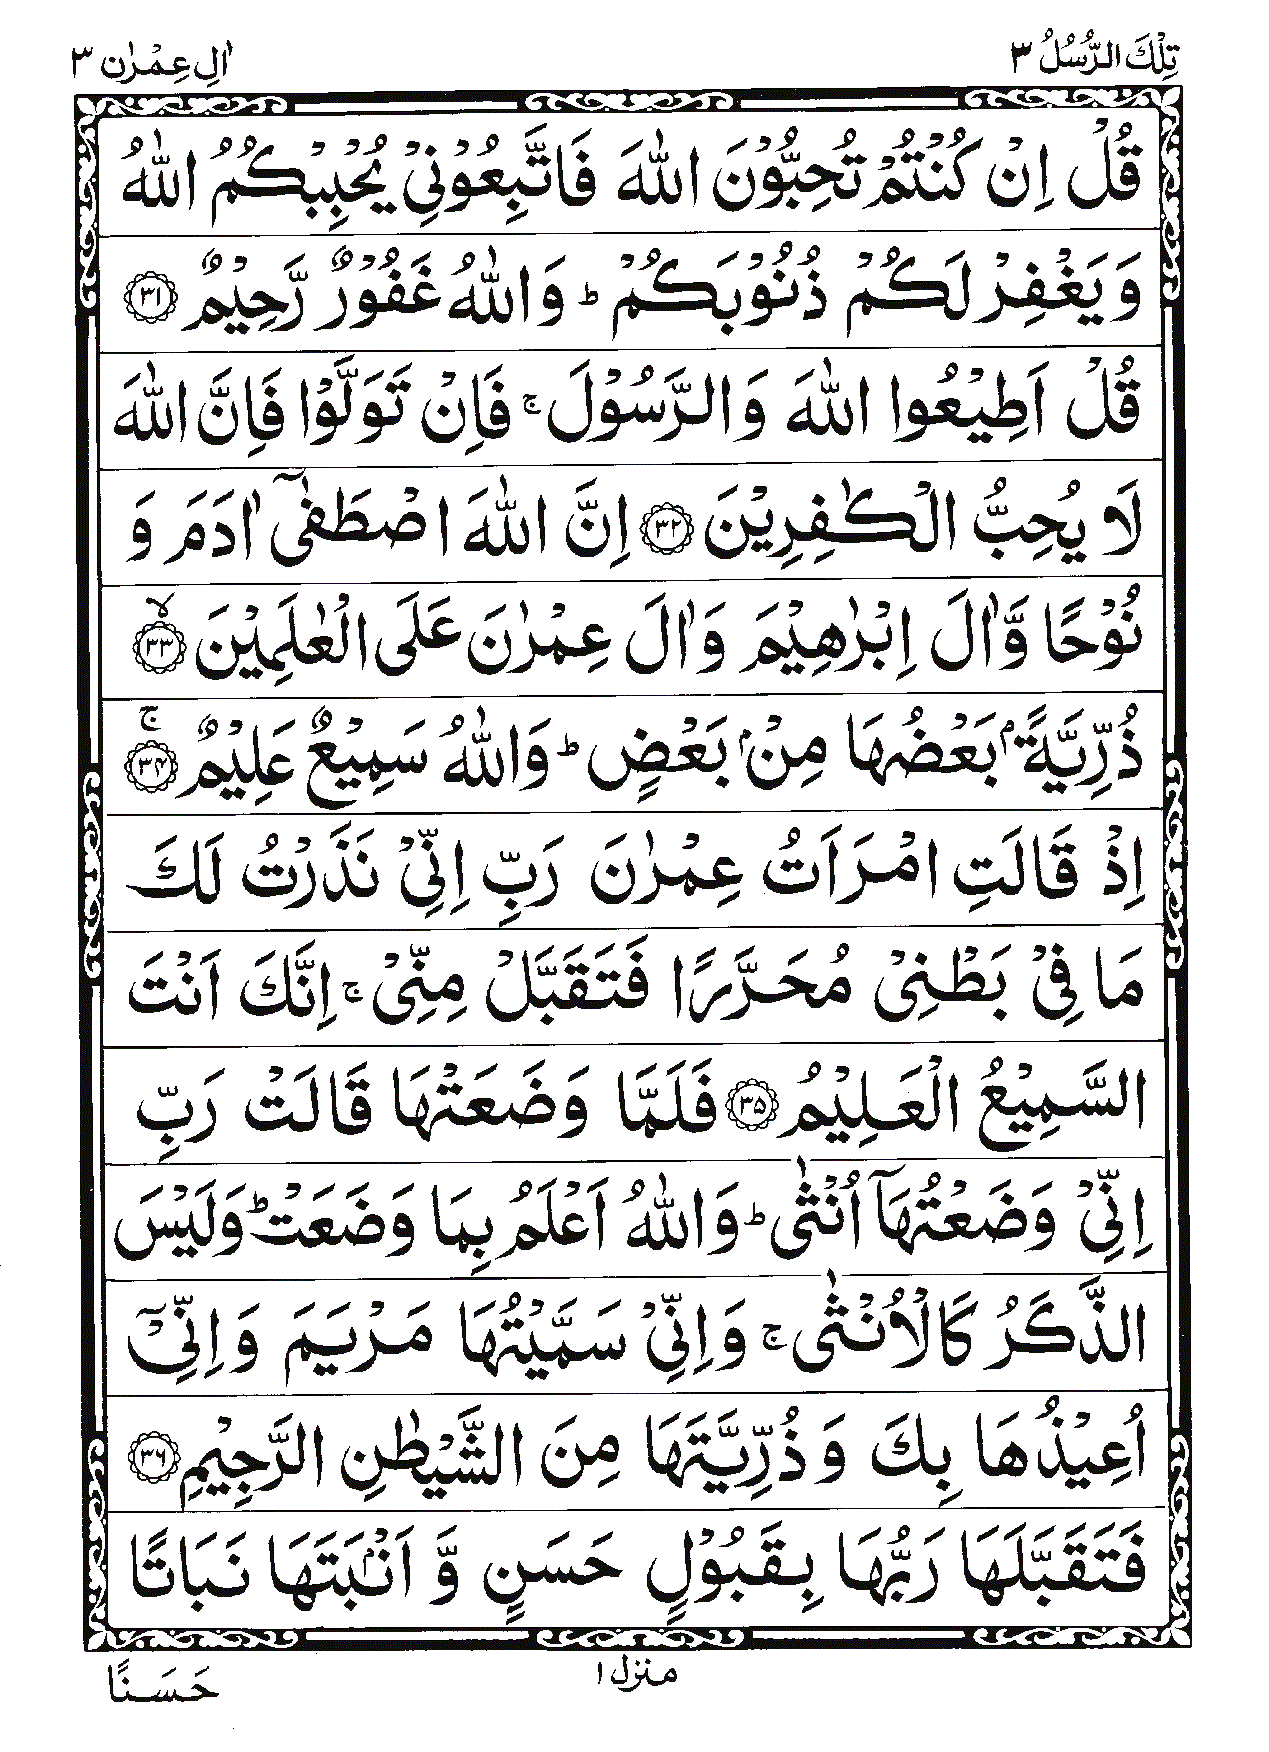 تِلْكَ الرُّسُلُ ٣
اٰلِ عِمْرٰن ٣
قُلْ اِنْ كُنْتُمْ تُحِبُّوْنَ اللّٰهَ فَاتَّبِعُوْنِيْ يُحْبِبْكُمُ اللّٰهُ
وَيَغْفِرْ لَكُمْ ذُنُوْبَكُمْ ؕ وَاللّٰهُ غَفُوْرٌ رَّحِيْمٌ ﴿۳۱﴾
قُلْ اَطِيْعُوا اللّٰهَ وَالرَّسُوْلَ ۚ فَاِنْ تَوَلَّوْا فَاِنَّ اللّٰهَ
لَا يُحِبُّ الْكٰفِرِيْنَ ﴿۳۲﴾ اِنَّ اللّٰهَ اصْطَفٰۤى اٰدَمَ وَ
نُوْحًا وَّاٰلَ اِبْرٰهِيْمَ وَاٰلَ عِمْرٰنَ عَلَى الْعٰلَمِيْنَ ﴿۳۳﴾ ۙ
ذُرِّيَّةًۢ بَعْضُهَا مِنْۢ بَعْضٍ ؕ وَاللّٰهُ سَمِيْعٌ عَلِيْمٌ ﴿۳۴﴾ ۚ
اِذْ قَالَتِ امْرَاَتُ عِمْرٰنَ رَبِّ اِنِّيْ نَذَرْتُ لَكَ
مَا فِيْ بَطْنِيْ مُحَرَّرًا فَتَقَبَّلْ مِنِّيْ ۚ اِنَّكَ اَنْتَ
السَّمِيْعُ الْعَلِيْمُ ﴿۳۵﴾ فَلَمَّا وَضَعَتْهَا قَالَتْ رَبِّ
اِنِّيْ وَضَعْتُهَاۤ اُنْثٰى ؕ وَاللّٰهُ اَعْلَمُ بِمَا وَضَعَتْ ؕ وَلَيْسَ
الذَّكَرُ كَالْاُنْثٰى ۚ وَاِنِّيْ سَمَّيْتُهَا مَرْيَمَ وَاِنِّيْۤ
اُعِيْذُهَا بِكَ وَذُرِّيَّتَهَا مِنَ الشَّيْطٰنِ الرَّجِيْمِ ﴿۳۶﴾
فَتَقَبَّلَهَا رَبُّهَا بِقَبُوْلٍ حَسَنٍ وَّ اَنْۢبَتَهَا نَبَاتًا
منزل ١
حَسَنًا